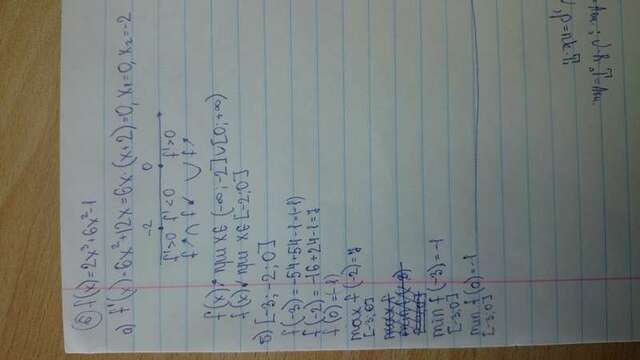 ⑥ f(x)=2x³+6x²-1
а) f'(x)=6x²+12x=6x·(x+2)=0, x₁=0, x₂=-2
-2 0
f'>0 f'<0 f'>0
f↗ f↘ f↗
f(x)↗ при x∈(-∞;-2]∪[0;+∞)
f(x)↘ при x∈[-2;0]
б) [-3;-2;0]
f(-3)=-54+54-1=(-1)
f(-2)=-16+24-1=7
f(0)=(-1)
max f(-2)=7
[-3;0]
min f(-3)=-1
[-3;0]
min f(0)=-1
[-3;0]